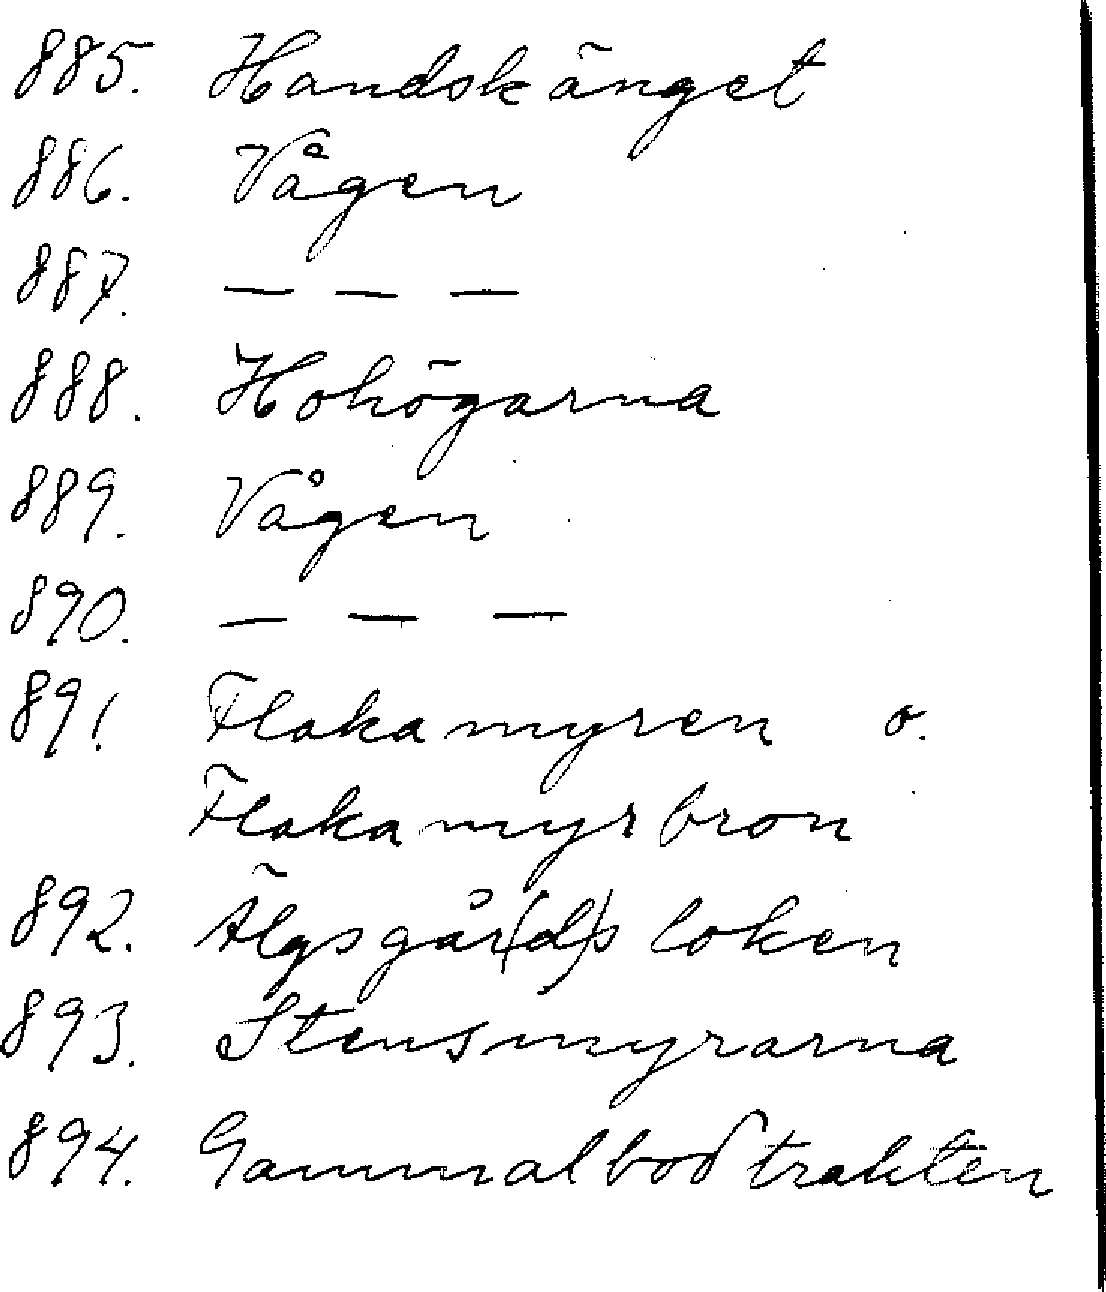 885. Handskänget
886. Vågen
887. — — —
888. Hohögarna
889. Vågen
890. — — —
891. Flakamyren o.
Flakamyrbron
892. Älgsgår(d)sloken
893. Stensmyrarna
894. Gammalbodtrakten